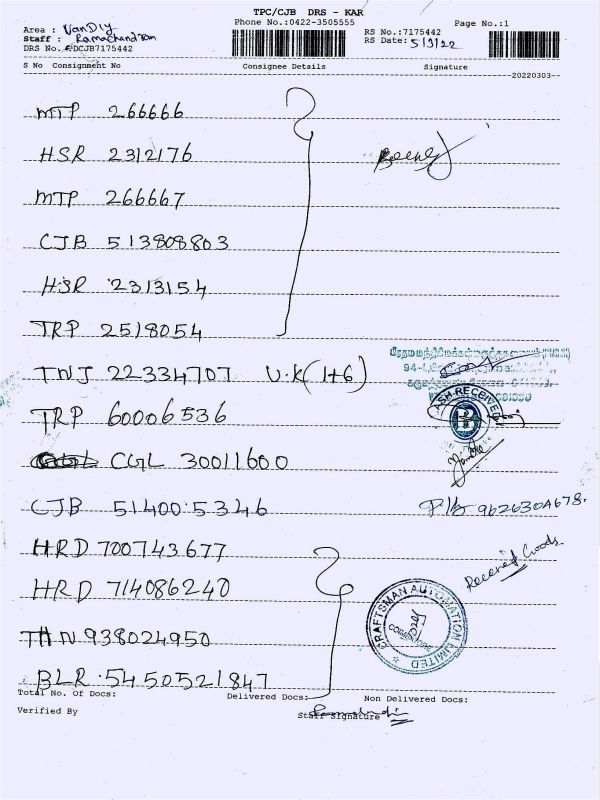 TPC/CJB DRS - KAR
Phone No.:0422-3505555
Page No.:1
Area : VanDly
Staff : Ramachandran
DRS No.: DCJB7175442
RS No.:7175442
RS Date: 5/3/22
S No Consignment No Consignee Details Signature
20220303
MTP 266666
HSR 2312176
MTP 266667
CJB 513808803
HSR 2313154
TRP 2518054
TNJ 22334707 U.K(1+6)
TRP 60006536
CGL 30011600
CJB 514005346
HRD 700743677
Received Goods
HRD 714086240
CRAFTSMAN AUTOMATION LIMITED
THN 938024950
BLR 5450521847
Total No. of Docs: Delivered Docs: Non Delivered Docs:
Verified By Staff Signature